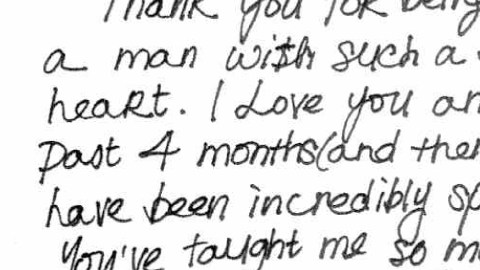 Thank you for being
a man with such a
heart. I Love you an
past 4 months(and ther
have been incredibly sp
You've taught me so m